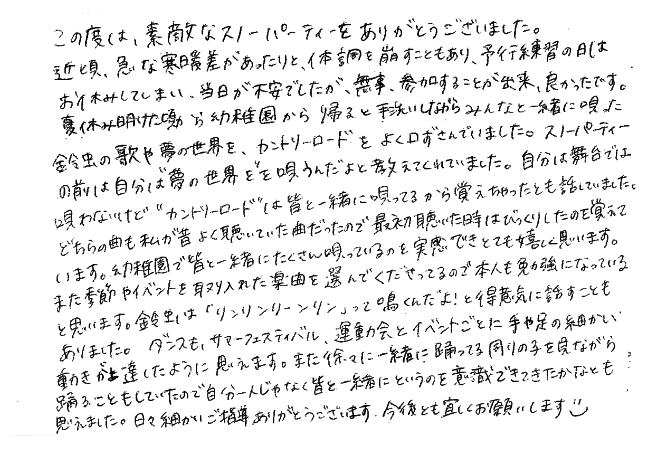 この度は、素敵なスノーパーティーをありがとうございました。
近頃、急な寒暖差があったりと、体調を崩すこともあり、予行練習の日は
お休みしてしまい、当日が不安でしたが、無事、参加することが出来、良かったです。
夏休み明けた頃から幼稚園から帰ると手洗いしながらみんなと一緒に唄った
鈴虫の歌や夢の世界を、カントリーロードをよく口ずさんでいました。スノーパーティー
の前は自分は"夢の世界を"を唄うんだよと教えてくれていました。自分は舞台では
唄わないけど"カントリーロード"は皆と一緒に唄ってるから覚えちゃったとも話していました。
どちらの曲も私が昔よく聴いていた曲だったので最初聴いた時はびっくりしたのを覚えて
います。幼稚園で皆と一緒にたくさん唄っているのを実感できとても嬉しく思います。
また季節やイベントを取り入れた楽曲を選んでくださってるので本人も勉強になっている
と思います。鈴虫は「リンリンリーンリン」って鳴くんだよ!と得意気に話すことも
ありました。ダンスも、サマーフェスティバル、運動会とイベントごとに手や足の細かい
動きが上達したように思えます。また徐々に一緒に踊ってる周りの子を見ながら
踊ることもしていたので自分一人じゃなく皆と一緒にというのを意識できてきたかなとも
思えました。日々細かいご指導ありがとうございます。今後とも宜しくお願いします